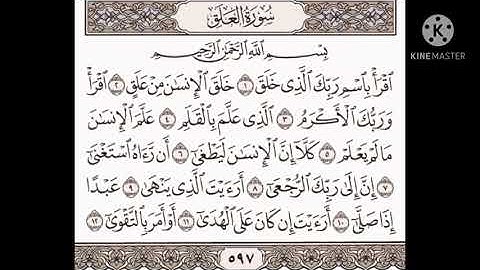 سُورَةُ العَلَقِ
بِسْمِ اللَّهِ الرَّحْمَٰنِ الرَّحِيمِ
ٱقْرَأْ بِٱسْمِ رَبِّكَ ٱلَّذِى خَلَقَ ١ خَلَقَ ٱلْإِنسَٰنَ مِنْ عَلَقٍ ٢ ٱقْرَأْ
وَرَبُّكَ ٱلْأَكْرَمُ ٣ ٱلَّذِى عَلَّمَ بِٱلْقَلَمِ ٤ عَلَّمَ ٱلْإِنسَٰنَ
مَا لَمْ يَعْلَمْ ٥ كَلَّآ إِنَّ ٱلْإِنسَٰنَ لَيَطْغَىٰٓ ٦ أَن رَّءَاهُ ٱسْتَغْنَىٰٓ
٧ إِنَّ إِلَىٰ رَبِّكَ ٱلرُّجْعَىٰٓ ٨ أَرَءَيْتَ ٱلَّذِى يَنْهَىٰ ٩ عَبْدًا
إِذَا صَلَّىٰٓ ١٠ أَرَءَيْتَ إِن كَانَ عَلَى ٱلْهُدَىٰٓ ١١ أَوْ أَمَرَ بِٱلتَّقْوَىٰٓ ١٢
٥٩٧
KINEMASTER